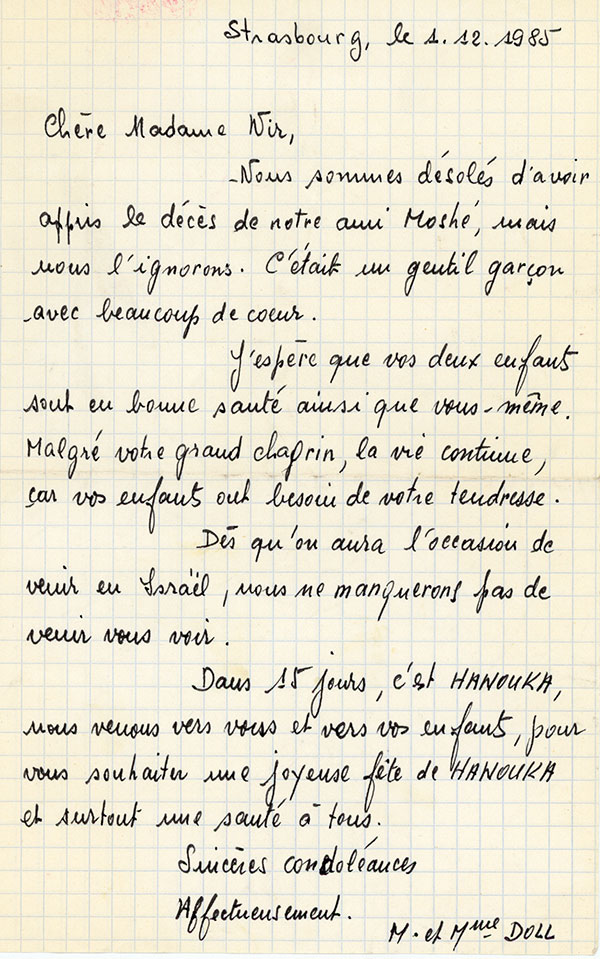 Strasbourg, le 1.12.1985
Chère Madame Nir,
Nous sommes désolés d'avoir
appris le décès de notre ami Moshé, mais
nous l'ignorons. C'était un gentil garçon
avec beaucoup de coeur.
J'espère que vos deux enfants
sont en bonne santé ainsi que vous-même.
Malgré votre grand chagrin, la vie continue,
car vos enfants ont besoin de votre tendresse.
Dès qu'on aura l'occasion de
venir en Israël, nous ne manquerons pas de
venir vous voir.
Dans 15 jours, c'est HANOUKA,
nous venons vers vous et vers vos enfants, pour
vous souhaiter une joyeuse fête de HANOUKA
et surtout une santé à tous.
Sincères condoléances
Affectueusement.
M. et Mme DOLL